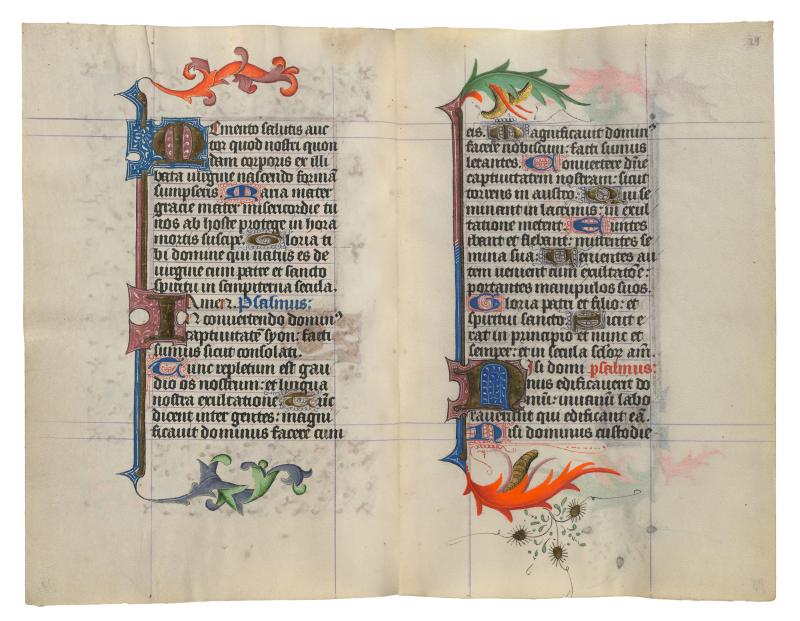 Memento salutis auc
tor quod nostri quon
dam corporis ex illi
bata uirgine nascendo formā
sumpseris. Maria mater
gracie mater misericordie tu
nos ab hoste protege in hora
mortis suscipe. Gloria ti
bi domine qui natus es de
uirgine cum patre et sancto
spiritu in sempiterna secula.
Amen. Psalmus:
IN conuertendo domin⁹
captiuitatē syon: facti
sumus sicut consolati.
Tunc repletum est gau
dio os nostrum: et lingua
nostra exultatione. Tūc
dicent inter gentes: magni
ficauit dominus facere cum
29
eis. Magnificauit domin⁹
facere nobiscum: facti sumus
letantes. Conuertere dn̄e
captiuitatem nostram: sicut
torrens in austro. Qui se
minant in lacrimis: in exul
tatione metent. Euntes
ibant et flebant: mittentes se
mina sua. Venientes au
tem uenient cum exultatōe:
portantes manipulos suos.
Gloria patri et filio: et
spiritui sancto. Sicut e
rat in principio et nunc et
semper: et in secula sclor̄ am̄.
Nisi domi psalmus:
nus edificauerit do
mū: inuanū labo
rauerunt qui edificant eā.
Nisi dominus custodie